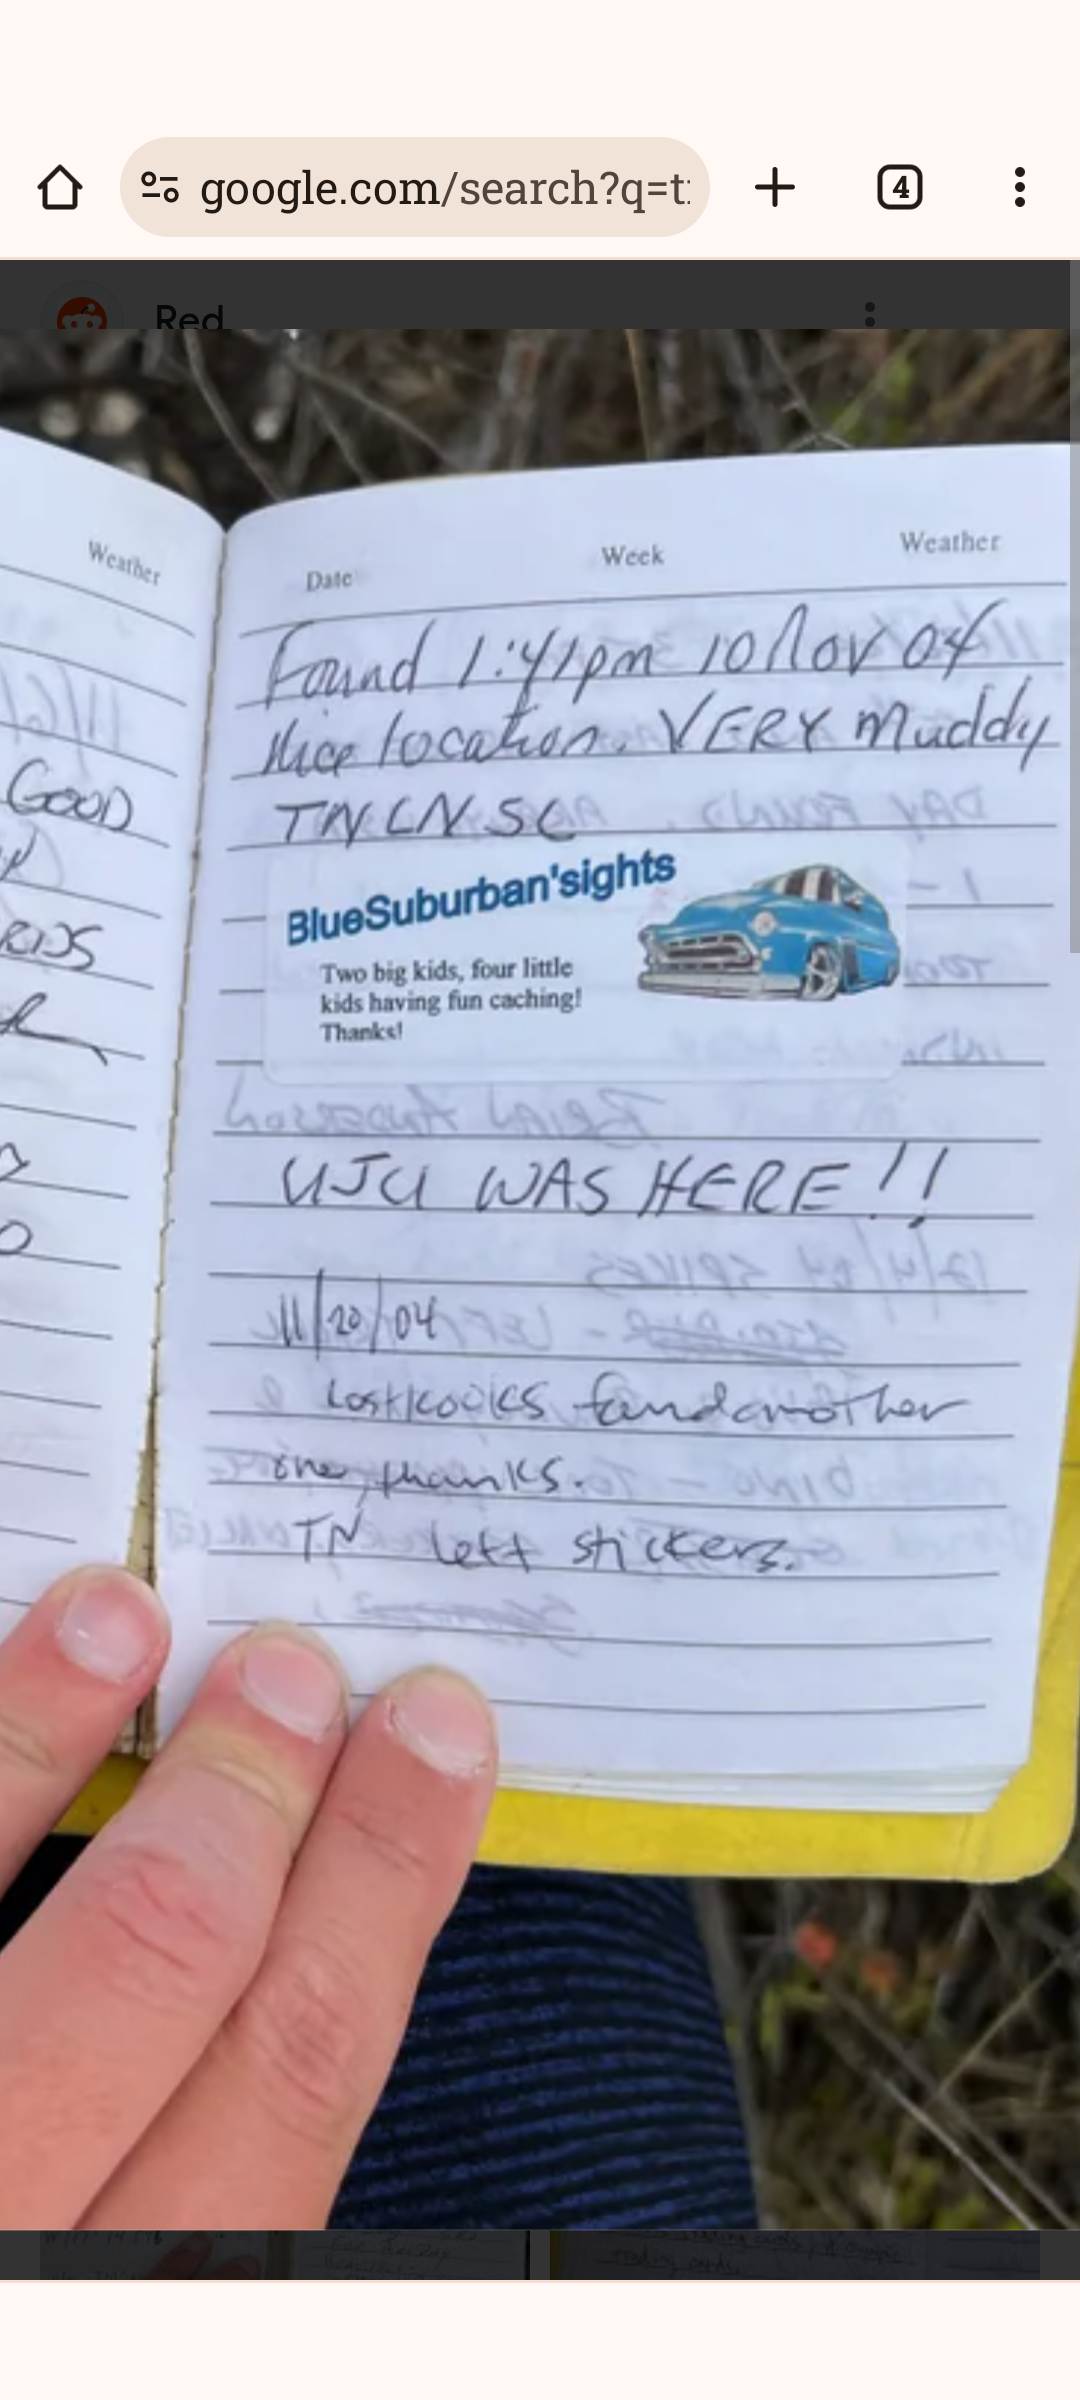 google.com/search?q=t
4
Red
Weather
GOOD
Date Week Weather
Found 1:41pm 10 Nov 04
Nice location. VERY Muddy
TNLNSL
BlueSuburban'sights
Two big kids, four little
kids having fun caching!
Thanks!
UJU WAS HERE!!
11/20/04
found another
one, thanks.
TN Left stickers.